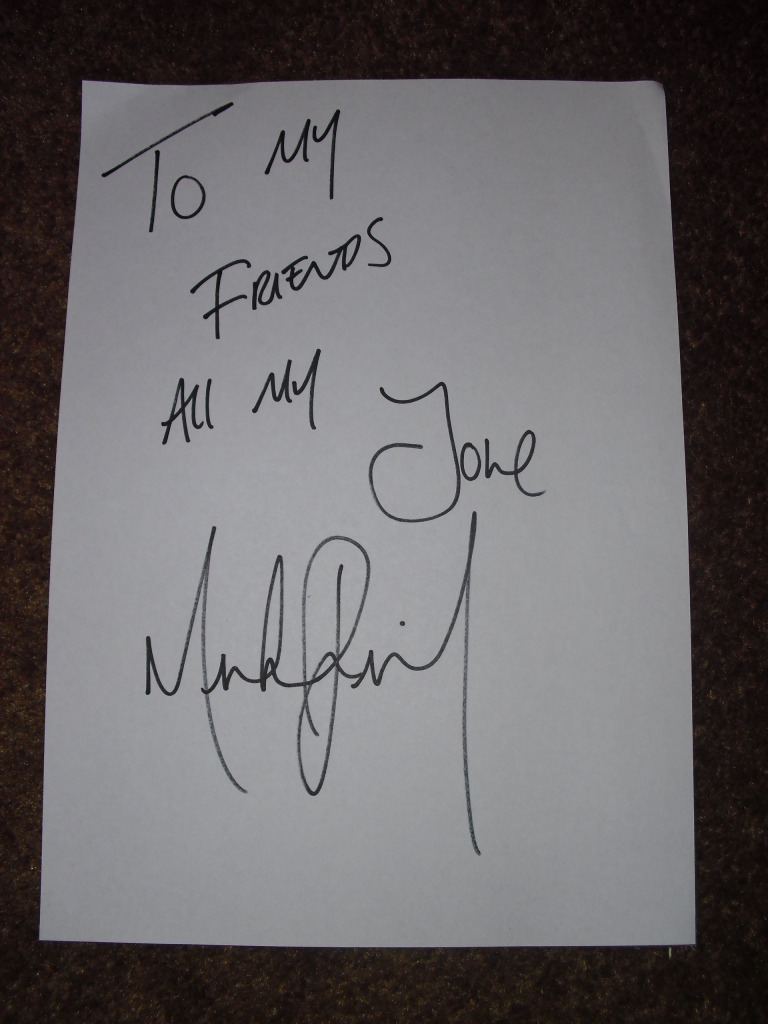 To My
FRIENDS
All My
Love